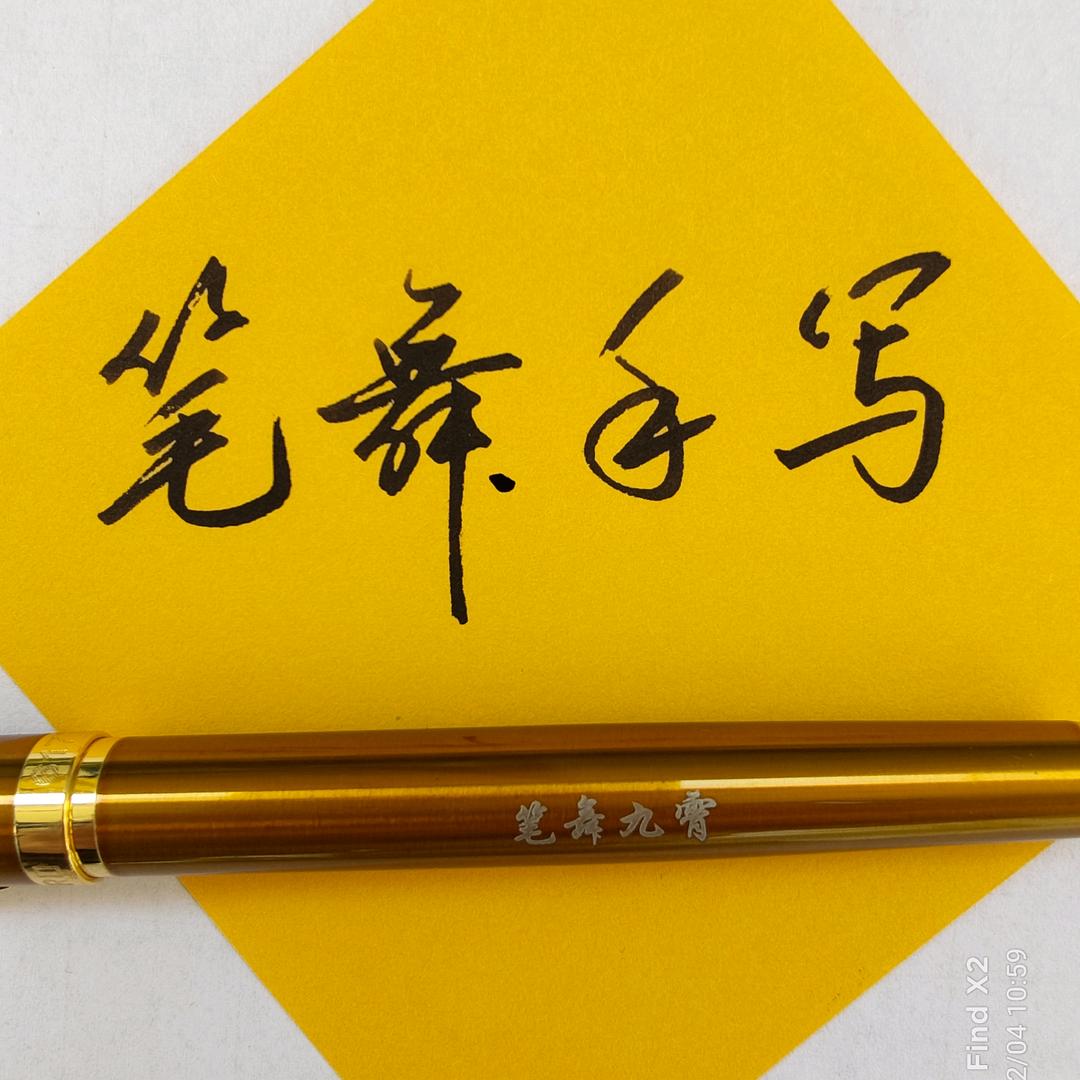 笔舞手写
笔舞九霄
Find X2
2/04 10:59